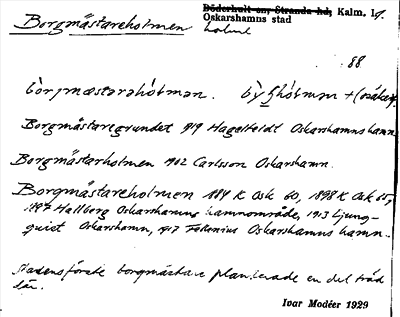 Borgmästareholmen
Döderhult sn, Stranda hd, Kalm. l.
Oskarshamns stad
holme
88
bòrgmæstarahòlmen.
Borgmästaregrundet 1919 Hagelfeldt Oskarshamns hamn
Borgmästarholmen 1902 Carlsson Oskarshamn.
Borgmästareholmen 1884 K Osk 60, 1898 K Osk 55,
1897 Hallberg Oskarshamns hamnområde, 1913 Ljung-
quist Oskarshamn, 1917 Oskarshamns hamn.
stadens förste borgmästare planterade en del träd
där.
Ivar Modéer 1929